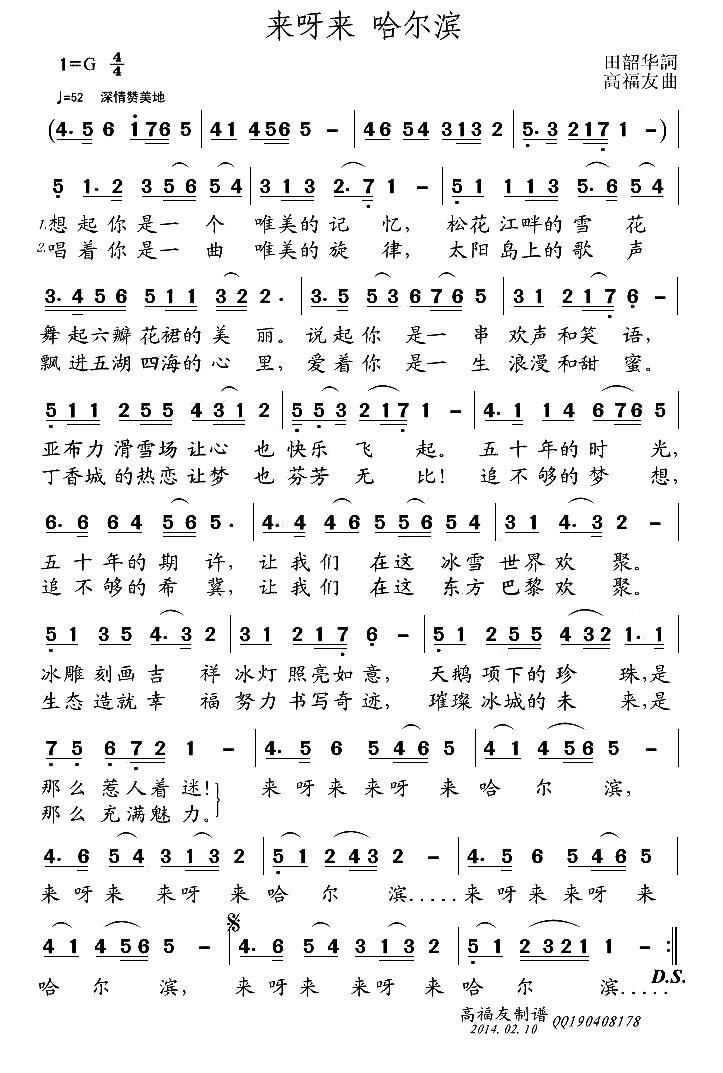 来呀来 哈尔滨
1=G 4/4
田韶华詞
高福友曲
♩=52 深情赞美地
(4. 5 6 1 7 6 5 | 4 1 4 5 6 5 5 - | 4 6 5 4 3 1 3 2 | 5. 3 2 1 7 1 - )|
5 1. 2 3 5 6 5 4 | 3 1 3 2. 7 1 - | 5 1 1 1 3 5. 6 5 4 |
1.想起你是一 个 唯美的记 忆, 松花江畔的雪 花
2.唱着你是一 曲 唯美的旋 律, 太阳岛上的歌 声
3. 4 5 6 5 1 1 3 2 2. | 3. 5 5 3 6 7 6 5 | 3 1 2 1 7 6 - |
舞起六瓣花裙的美 丽。说起你 是一 串 欢声和笑语,
飘进五湖四海的心 里, 爱着你 是一 生 浪漫和甜 蜜。
5 1 1 2 5 5 4 3 1 2 | 5 5 3 2 1 7 1 - | 4. 1 1 4 6 7 6 5 |
亚布力滑雪场让心 也 快乐 飞 起。 五十年的时 光,
丁香城的热恋让梦 也 芬芳 无 比! 追不够的梦 想,
6. 6 6 4 5 6 5. | 4. 4 4 6 5 5 6 5 4 | 3 1 4. 3 2 - |
五十年的期 许, 让我们 在这 冰雪世界欢 聚。
追不够的希 冀, 让我们 在这 东方巴黎欢 聚。
5 1 3 5 4. 3 2 | 3 1 2 1 7 6 - | 5 1 2 5 5 4 3 2 1. 1 |
冰雕刻画吉 祥冰灯照亮如意, 天鹅项下的珍 珠,是
生态造就幸 福努力书写奇迹, 璀璨冰城的未 来,是
7 5 6 7 2 1 - | 4. 5 6 5 4 6 5 | 4 1 4 5 6 5 - |
那么惹人着迷! 来 呀来 来呀 来 哈 尔 滨,
那么充满魅力。
4. 6 5 4 3 1 3 2 | 5 1 2 4 3 2 - | 4. 5 6 5 4 6 5 |
来 呀来 来呀 来哈 尔 滨.....来 呀来来呀 来
4 1 4 5 6 5 - | 4. 6 5 4 3 1 3 2 | 5 1 2 3 2 1 1 - :‖
D.S.
哈 尔 滨, 来 呀来 来呀 来哈 尔 滨.....
高福友制谱 QQ190408178
2014. 02. 10